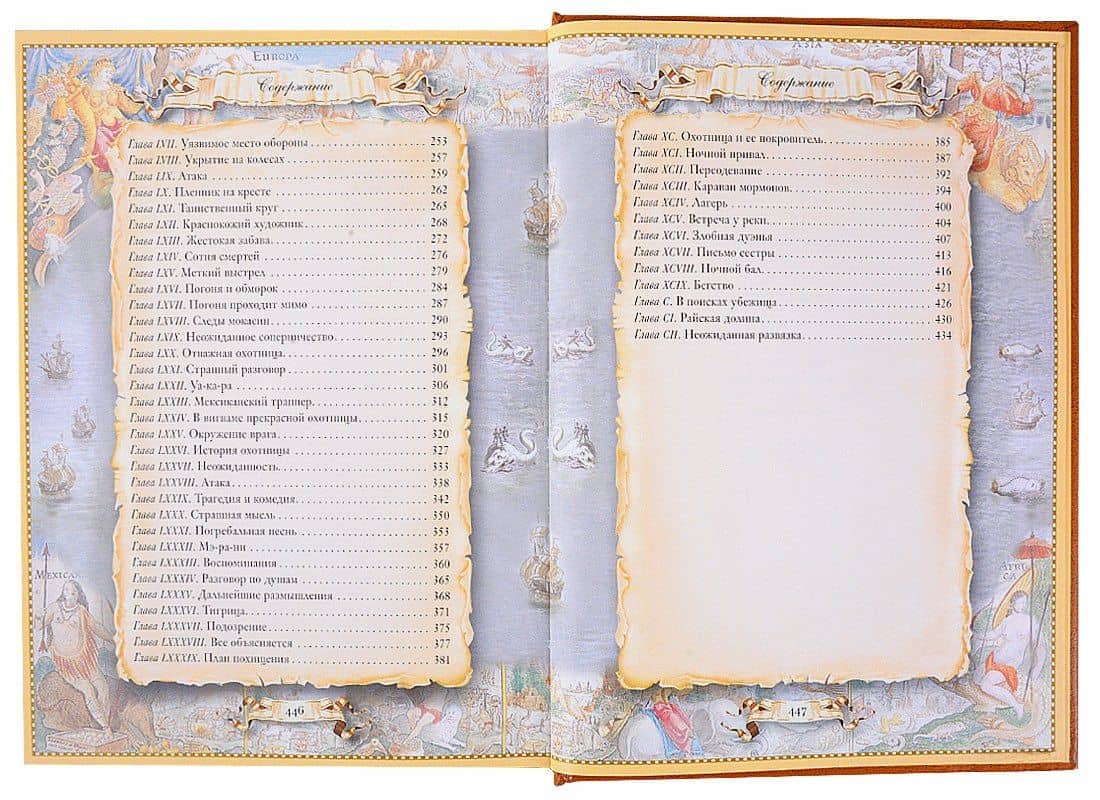 EUROPA
Содержание
Глава LVII. Уязвимое место обороны 253
Глава LVIII. Укрытие на колесах 257
Глава LIX. Атака 259
Глава LX. Пленник на кресте 262
Глава LXI. Таинственный круг 265
Глава LXII. Краснокожий художник 268
Глава LXIII. Жестокая забава 272
Глава LXIV. Сотня смертей 276
Глава LXV. Меткий выстрел 279
Глава LXVI. Погоня и обморок 284
Глава LXVII. Погоня проходит мимо 287
Глава LXVIII. Следы мокасин 290
Глава LXIX. Неожиданное соперничество 293
Глава LXX. Отважная охотница 296
Глава LXXI. Странный разговор 301
Глава LXXII. Уа-ка-ра 306
Глава LXXIII. Мексиканский траппер 312
Глава LXXIV. В вигваме прекрасной охотницы 315
Глава LXXV. Окружение врага 320
Глава LXXVI. История охотницы 327
Глава LXXVII. Неожиданность 333
Глава LXXVIII. Атака 338
Глава LXXIX. Трагедия и комедия 342
Глава LXXX. Страшная мысль 350
Глава LXXXI. Погребальная песнь 353
Глава LXXXII. Мэ-ра-ни 357
Глава LXXXIII. Воспоминания 360
Глава LXXXIV. Разговор по душам 365
Глава LXXXV. Дальнейшие размышления 368
Глава LXXXVI. Тигрица 371
Глава LXXXVII. Подозрение 375
Глава LXXXVIII. Все объясняется 377
Глава LXXXIX. План похищения 381
MEXICA
446
ASIA
Содержание
Глава XC. Охотница и ее покровитель 385
Глава XCI. Ночной привал 387
Глава XCII. Переодевание 392
Глава XCIII. Караван мормонов 394
Глава XCIV. Лагерь 400
Глава XCV. Встреча у реки 404
Глава XCVI. Злобная дуэнья 407
Глава XCVII. Письмо сестры 413
Глава XCVIII. Ночной бал 416
Глава XCIX. Бегство 421
Глава C. В поисках убежища 426
Глава CI. Райская долина 430
Глава CII. Неожиданная развязка 434
AFRI
CA
447